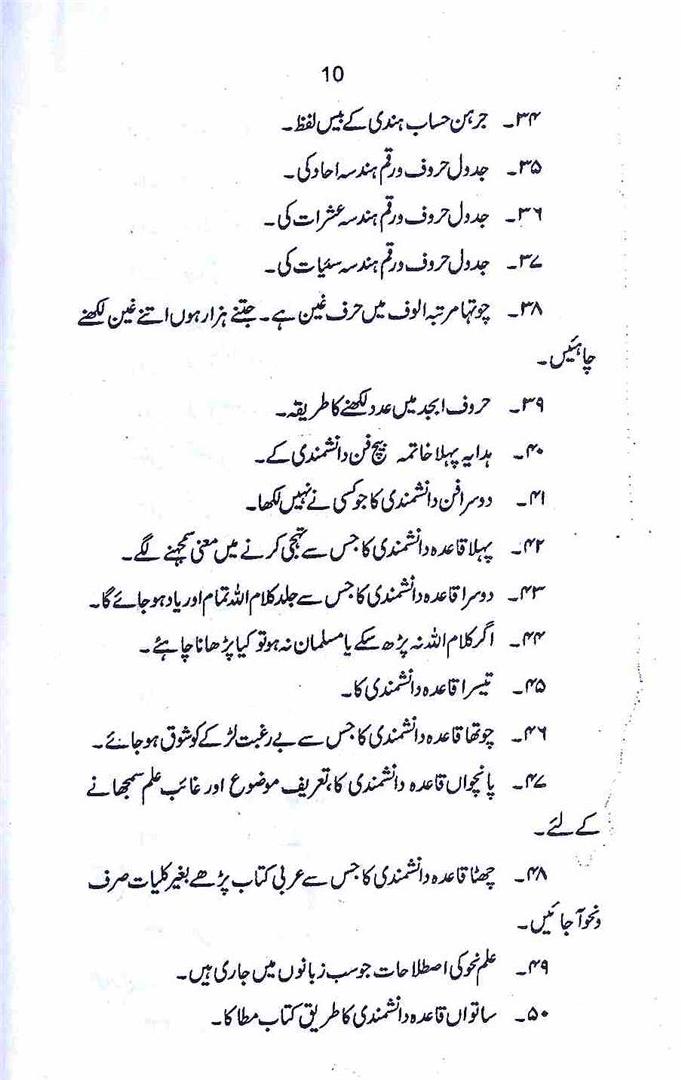 10
۳۴۔ جرہن حساب ہندی کے بیس لفظ۔
۳۵۔ جدول حروف ورقم ہندسہ احاد کی۔
۳۶۔ جدول حروف ورقم ہندسہ عشرات کی۔
۳۷۔ جدول حروف ورقم ہندسہ سئیات کی۔
۳۸۔ چوتہا مرتبہ الوف میں حرف غین ہے۔ جتنے ہزار ہوں اتنے غین لکھنے
چاہئیں۔
۳۹۔ حروف ابجد میں عدد لکھنے کا طریقہ۔
۴۰۔ ہدایہ پہلا خاتمہ بیچ فن دانشمندی کے۔
۴۱۔ دوسرا فن دانشمندی کا جو کسی نے نہیں لکھا۔
۴۲۔ پہلا قاعدہ دانشمندی کا جس سے تہجی کرنے میں معنی سمجہنے لگے۔
۴۳۔ دوسرا قاعدہ دانشمندی کا جس سے جلد کلام اللہ تمام اور یاد ہو جائے گا۔
۴۴۔ اگر کلام اللہ نہ پڑھ سکے یا مسلمان نہ ہو تو کیا پڑھانا چاہئے۔
۴۵۔ تیسرا قاعدہ دانشمندی کا۔
۴۶۔ چوتھا قاعدہ دانشمندی کا جس سے بے رغبت لڑکے کو شوق ہو جائے۔
۴۷۔ پانچواں قاعدہ دانشمندی کا، تعریف موضوع اور غائب علم سمجھانے
کے لئے۔
۴۸۔ چھٹا قاعدہ دانشمندی کا جس سے عربی کتاب پڑھے بغیر کلیات صرف
ونحو آ جائیں۔
۴۹۔ علم نحو کی اصطلاحات جو سب زبانوں میں جاری ہیں۔
۵۰۔ ساتواں قاعدہ دانشمندی کا طریق کتاب مطا کا۔